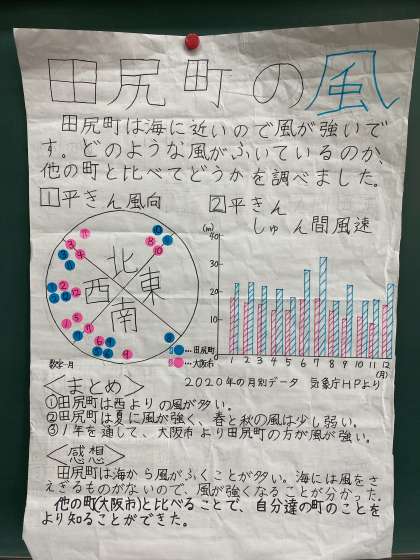 田尻町の風
田尻町は海に近いので風が強いで
す。どのような風がふいているのか、
他の町と比べてどうかを調べました。
1 平きん風向
2 平きん
しゅん間風速
北
西 東
南
数字…月
●…田尻町
●…大阪市
(m)
40
30
20
10
0
1 2 3 4 5 6 7 8 9 10 11 12
(月)
2020年の月別データ 気象庁HPより
<まとめ>
①田尻町は西よりの風が多い。
②田尻町は夏に風が強く、春と秋の風は少し弱い。
③1年を通して、大阪市より田尻町の方が風が強い。
<感想>
田尻町は海から風がふくことが多い。海には風をさ
えぎるものがないので、風が強くなることが分かった。
他の町(大阪市)と比べることで、自分達の町のことを
より知ることができた。